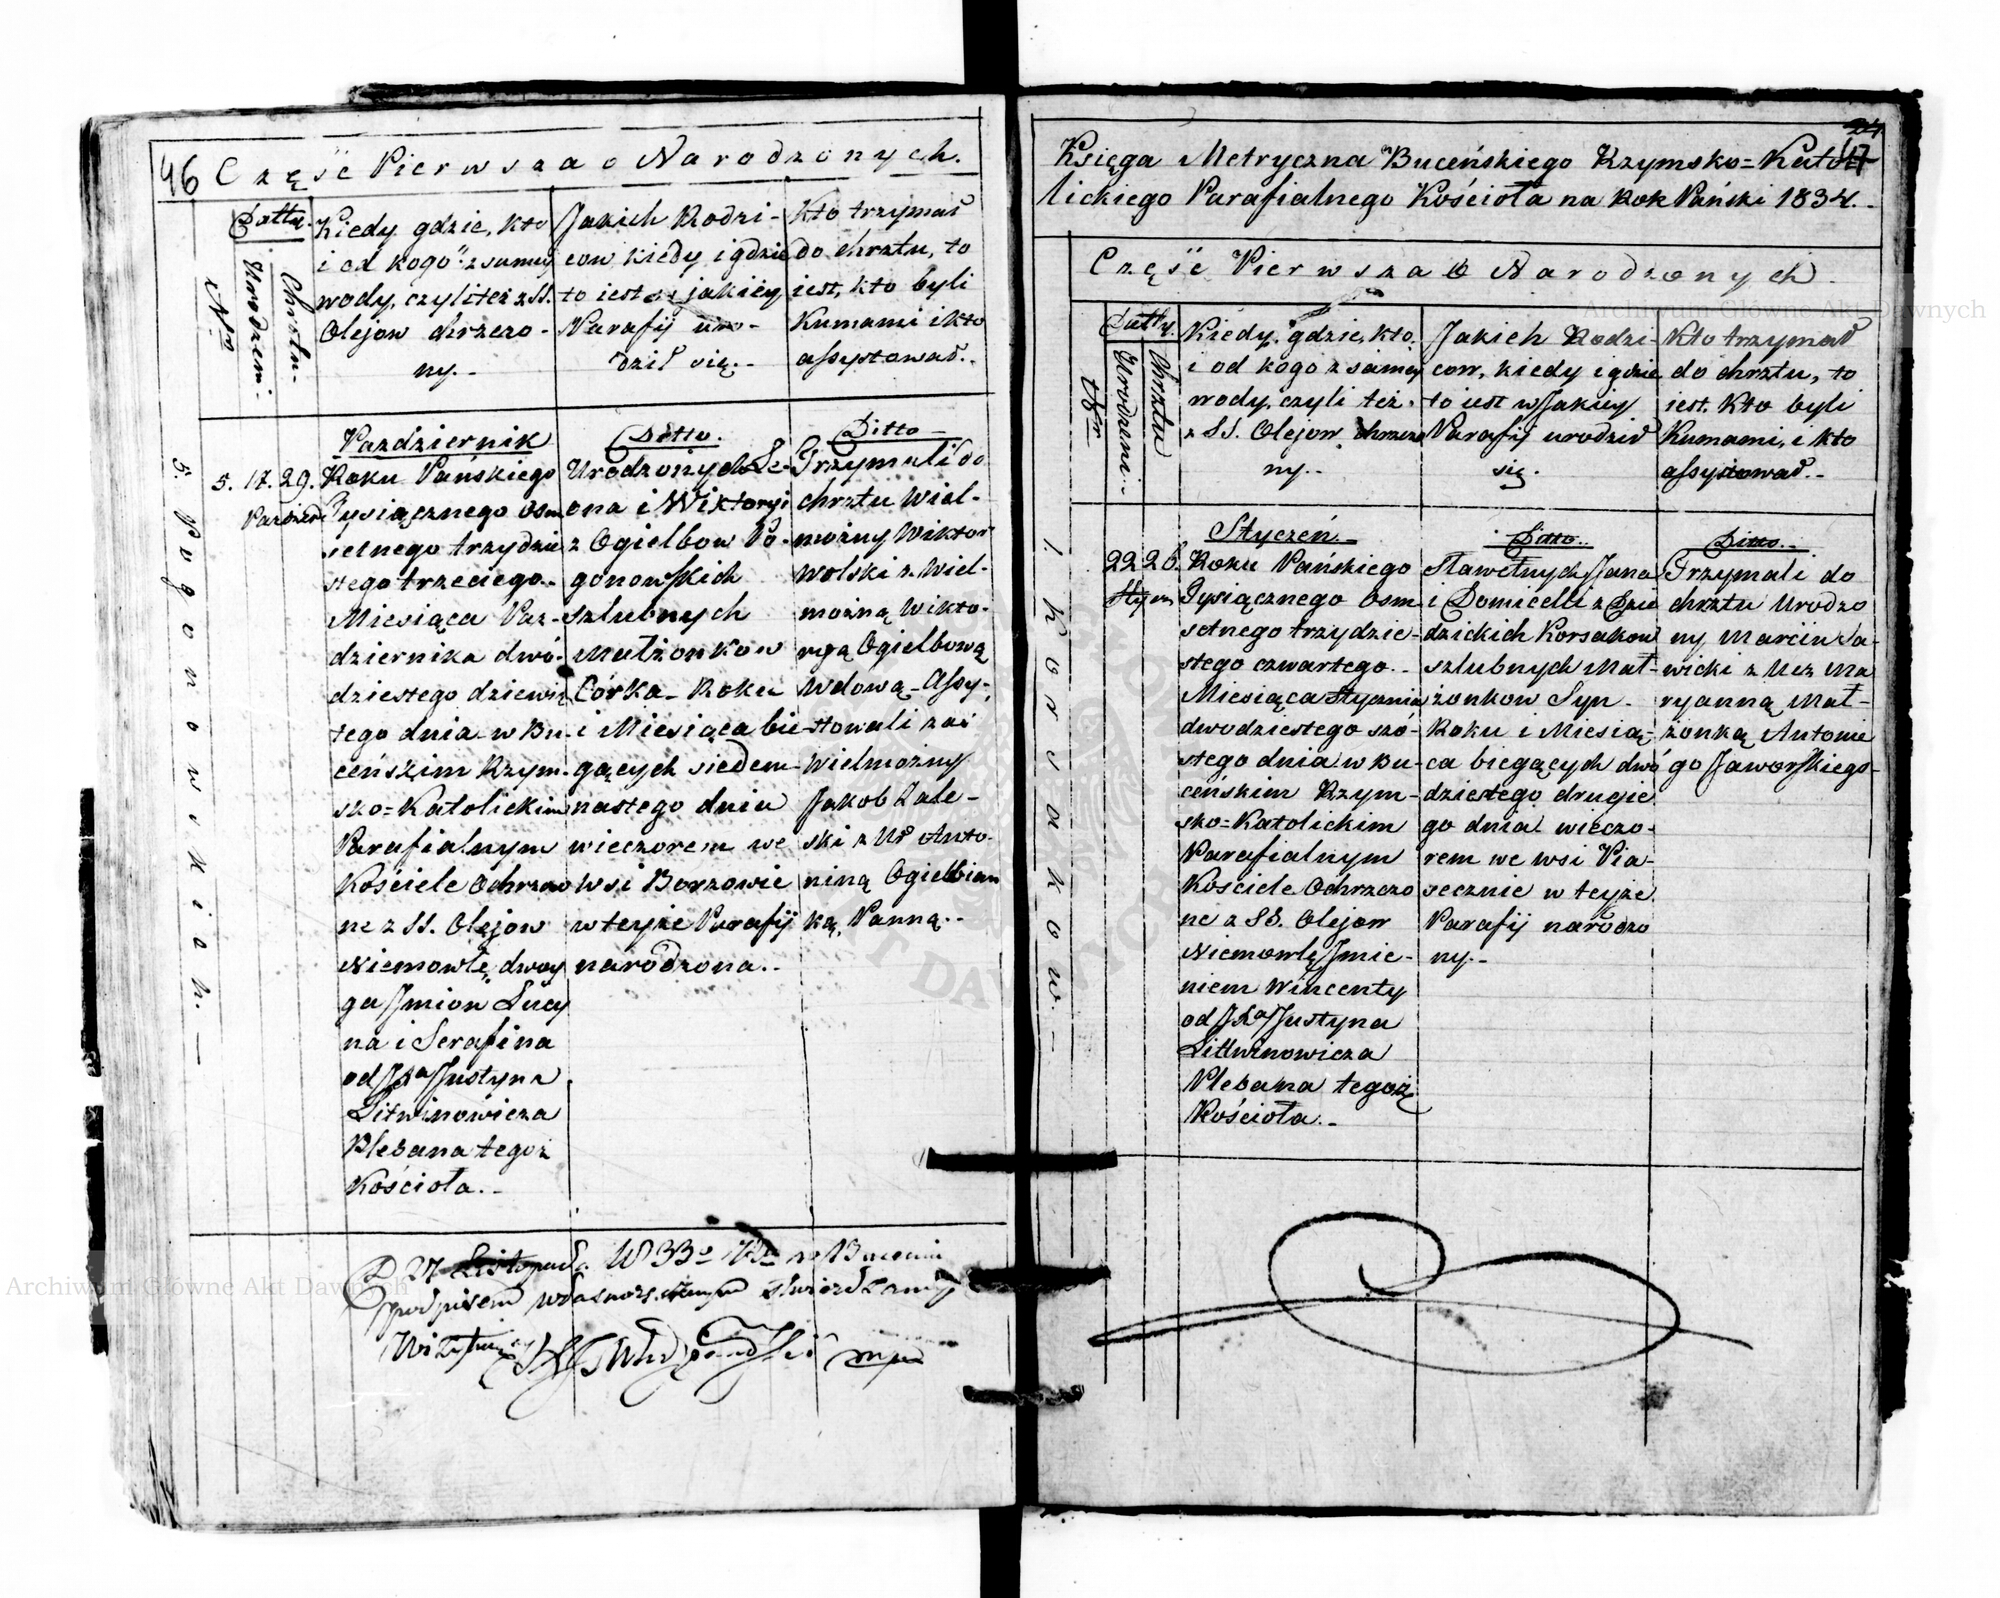 46 Część Pierwsza o Narodzonych.
Datta.
Nro
Urodzeni.
Chrztu.
Kiedy gdzie, kto
i od kogo z samey
wody, czyli też z SS.
Olejow chrzczo-
ny.-
Jakich Rodzi-
cow kiedy i gdzie
to iest w jakiey
Parafij uro-
dził się.-
Kto trzymał
do chrztu, to
iest, kto byli
Kumami i kto
assystował.-
5. Pogonowskich.-
5. 17. 29.
Pazdzier
Pazdziernik
Roku Pańskiego
Tysiącznego osm
setnego trzydzie
stego trzeciego.-
Miesiąca Paz-
dziernika dwó-
dziestego dziewią
tego dnia w Bu-
ceńskim Rzym-
sko=Katolickim
Parafialnym
Kościele Ochrzczo
ne z SS. Olejow
Niemowlę dwoy
ga Jmion Lucy
na i Serafina
od JXa Justyna
Litwinowicza
Plebana tegoż
Kościoła.-
Ditto.
Urodzonych Le-
ona i Wiktoryi
z Ogielbow Po-
gonowskich
szlubnych
Małżonkow
Córka- Roku
i Miesiąca bie-
gących siedem-
nastego dnia
wieczorem we
Wsi Borzowie
w teyże Parafij
narodzona.-
Ditto-
Trzymali do
chrztu Wiel-
możny Wiktor
Wolski z Wiel-
możną Wikto-
ryą Ogielbową
Wdową- Assy-
stowali zaś
Wielmożny
Jakob Zale-
ski z Ur Anto-
niną Ogielbian
ką, Panną.-
D 27 Listopada 1833o Ru w Buceniu
podpisem własnoręcznym stwierdzamy
47
Księga Metryczna Buceńskiego Rzymsko=Kato
lickiego Parafialnego Kościoła na Rok Pański 1834.-
Część Pierwsza o Narodzonych.
Datty.
Nr
Urodzeni.-
Chrztu
Kiedy, gdzie, kto,
i od kogo z samey
wody, czyli też
z SS. Olejow chrzczo
ny.-
Jakich Rodzi-
cow, kiedy i gdzie
to iest w Jakiey
Parafij urodził
się.
Kto trzymał
do chrztu, to
iest. Kto byli
Kumami, i kto
assystował.-
1. Korsakow.-
22 26.
Styczeń
Roku Pańskiego
Tysiącznego Osm
setnego trzydzie-
stego czwartego.-
Miesiąca Stycznia
dwodziestego szó-
stego dnia w Bu-
ceńskim Rzym-
sko=Katolickim
Parafialnym
Kościele Ochrzczo
ne z SS. Olejow
Niemowlę Jmie-
niem Wincenty
od JXa Justyna
Littwinowicza
Plebana tegoż
Kościoła.-
Ditto.
Sławetnych Jana
i Domicelli z Dzie
dzickich Korsakow
szlubnych Mał-
żonkow Syn-
Roku i Miesią-
ca biegących dwó
dziestego drugie
go dnia wieczo-
rem we wsi Pia-
secznie w teyże
Parafij narodzo
ny.-
Ditto.-
Trzymali do
chrztu Urodzo
ny Marcin Sa-
wicki z Ucz Ma
ryanną Mał-
żonką Antonie
go Jaworskiego-
Archiwum Główne Akt Dawnych
Archiwum Główne Akt Dawnych